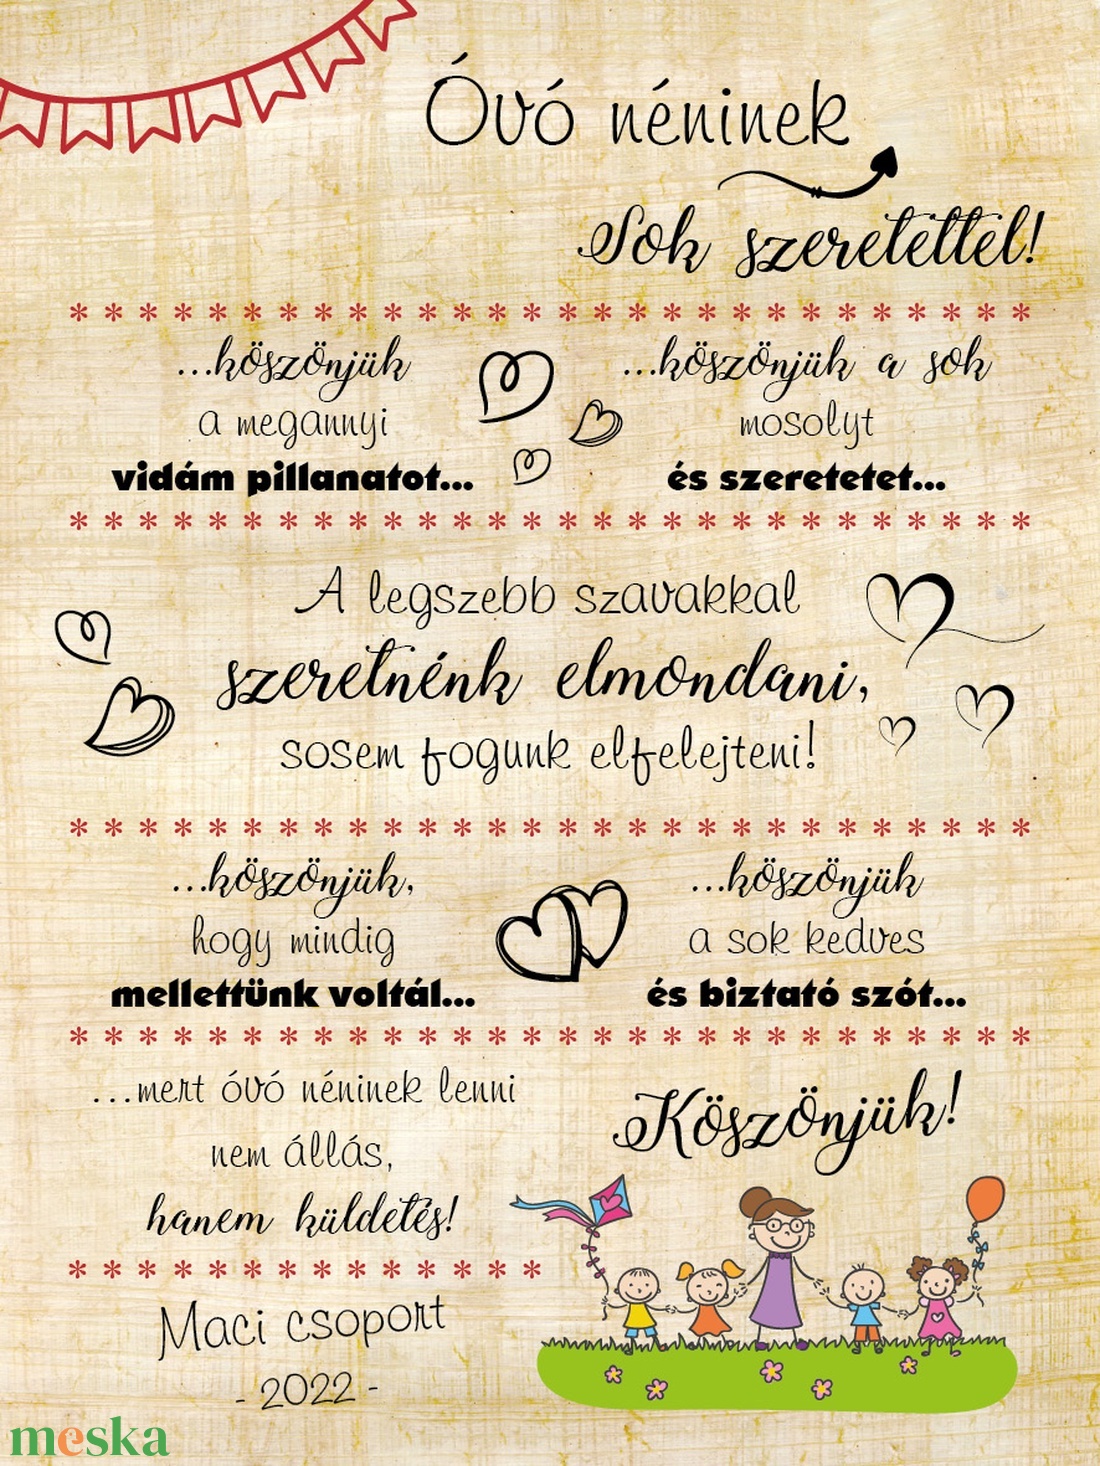 Óvó néninek
Sok szeretettel!
...köszönjük
a megannyi
vidám pillanatot...
...köszönjük a sok
mosolyt
és szeretetet...
A legszebb szavakkal
szeretnénk elmondani,
sosem fogunk elfelejteni!
...köszönjük,
hogy mindig
mellettünk voltál...
...köszönjük
a sok kedves
és biztató szót...
...mert óvó néninek lenni
nem állás,
hanem küldetés!
Köszönjük!
Maci csoport
- 2022 -
meska